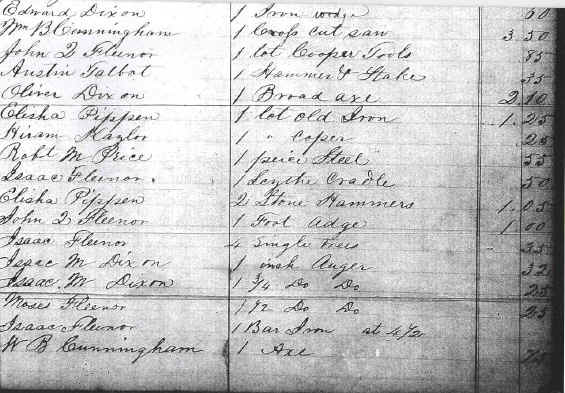 Edward Dixon 1 Iron wedge 60
Wm B Cunningham 1 Cross cut saw 3 50
John Q Fleenor 1 lot Cooper Tools 85
Austin Talbot 1 Hammer & Stake 35
Oliver Dixon 1 Broad axe 2.10
Elisha Pippen 1 lot old Iron 1.25
Hiram Naylor 1 " Coper 25
Robt M Price 1 peice Steel 55
Isaac Fleenor. 1 Scythe Cradle 50
Elisha Pippen 2 Stone Hammers 1.05
John Q Fleenor 1 Foot Adge 1 00
Isaac Fleenor 4 Single 35
Isaac M Dixon 1 inch Auger 32
Isaac M Dixon 1 3/4 Do Do 25
Moses Fleenor 1 1/2 Do Do 25
Isaac Fleenor 1 Bar Iron at 4 1/2
W B Cunningham 1 Axe 75